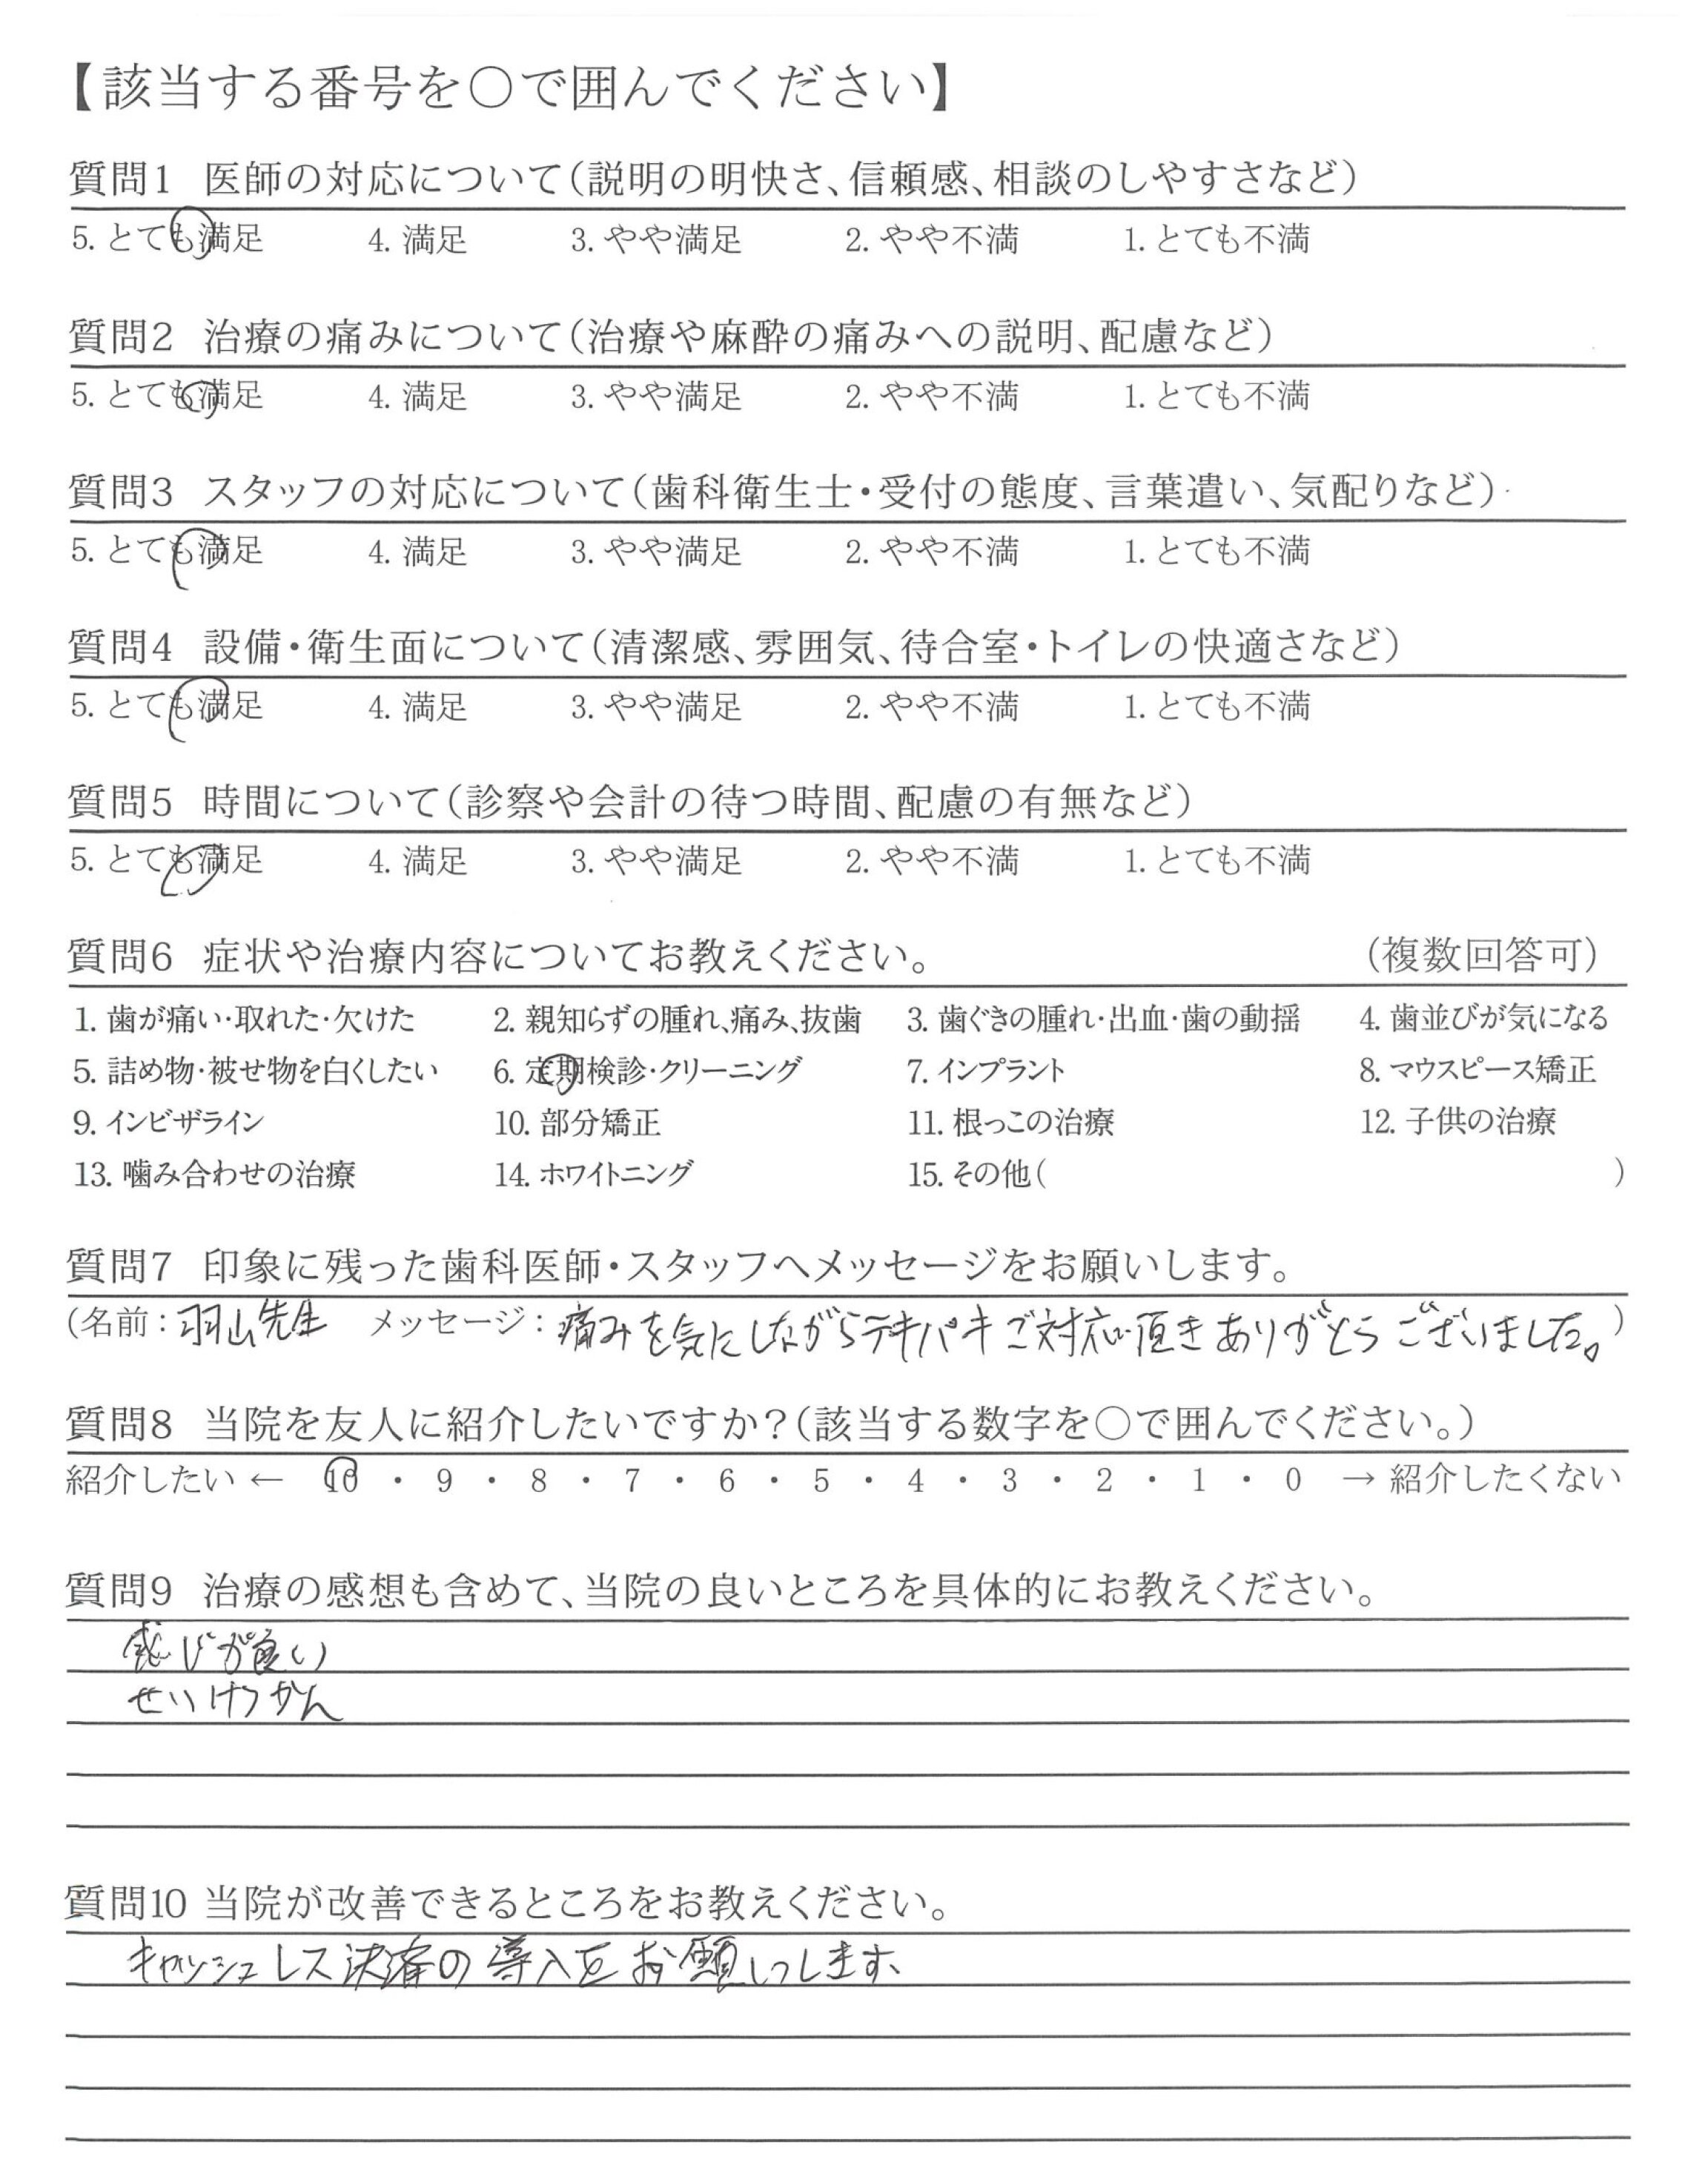 【該当する番号を○で囲んでください】
質問1 医師の対応について(説明の明快さ、信頼感、相談のしやすさなど)
5. とても満足 4. 満足 3. やや満足 2. やや不満 1. とても不満
質問2 治療の痛みについて(治療や麻酔の痛みへの説明、配慮など)
5. とても満足 4. 満足 3. やや満足 2. やや不満 1. とても不満
質問3 スタッフの対応について(歯科衛生士・受付の態度、言葉遣い、気配りなど)
5. とても満足 4. 満足 3. やや満足 2. やや不満 1. とても不満
質問4 設備・衛生面について(清潔感、雰囲気、待合室・トイレの快適さなど)
5. とても満足 4. 満足 3. やや満足 2. やや不満 1. とても不満
質問5 時間について(診察や会計の待つ時間、配慮の有無など)
5. とても満足 4. 満足 3. やや満足 2. やや不満 1. とても不満
質問6 症状や治療内容についてお教えください。 (複数回答可)
1. 歯が痛い・取れた・欠けた 2. 親知らずの腫れ、痛み、抜歯 3. 歯ぐきの腫れ・出血・歯の動揺 4. 歯並びが気になる
5. 詰め物・被せ物を白くしたい 6. 定期検診・クリーニング 7. インプラント 8. マウスピース矯正
9. インビザライン 10. 部分矯正 11. 根っこの治療 12. 子供の治療
13. 噛み合わせの治療 14. ホワイトニング 15. その他( )
質問7 印象に残った歯科医師・スタッフへメッセージをお願いします。
(名前:羽山先生 メッセージ:痛みを気にしながらテキパキご対応頂きありがとうございました。)
質問8 当院を友人に紹介したいですか?(該当する数字を○で囲んでください。)
紹介したい ← 10 ・ 9 ・ 8 ・ 7 ・ 6 ・ 5 ・ 4 ・ 3 ・ 2 ・ 1 ・ 0 → 紹介したくない
質問9 治療の感想も含めて、当院の良いところを具体的にお教えください。
感じが良い
せいけつかん
質問10 当院が改善できるところをお教えください。
キャッシュレス決済の導入をお願いします、